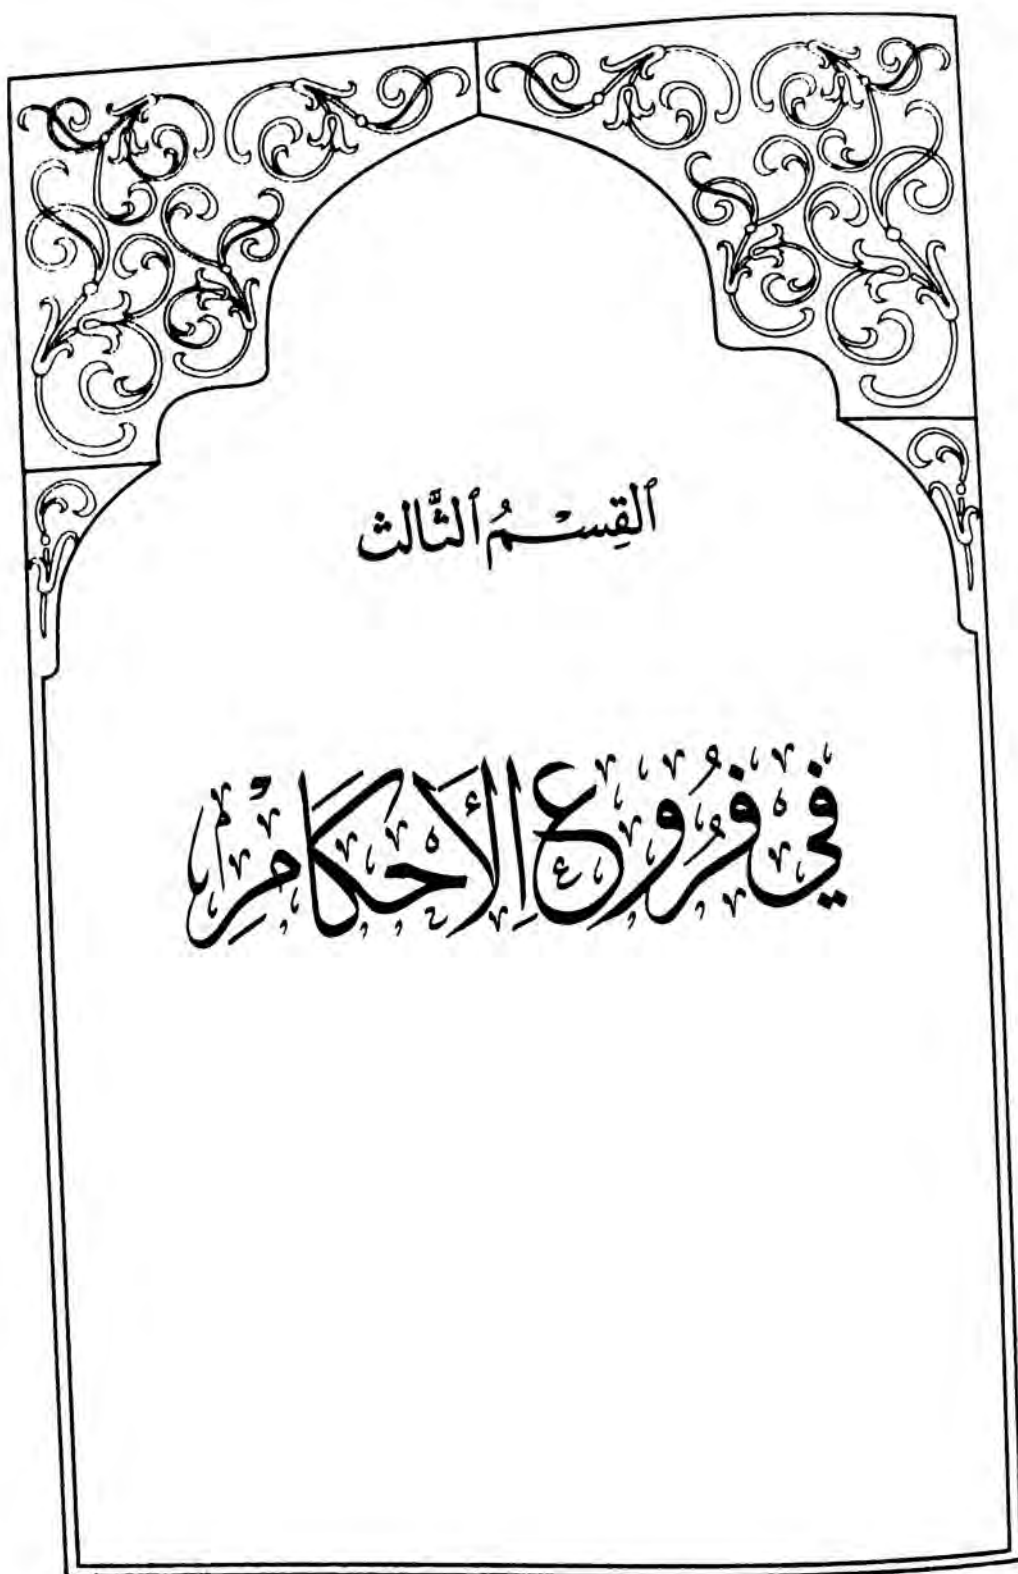 ٱلقِسْمُ ٱلثَّالث
في فُرُوعِ الأَحكَامِ